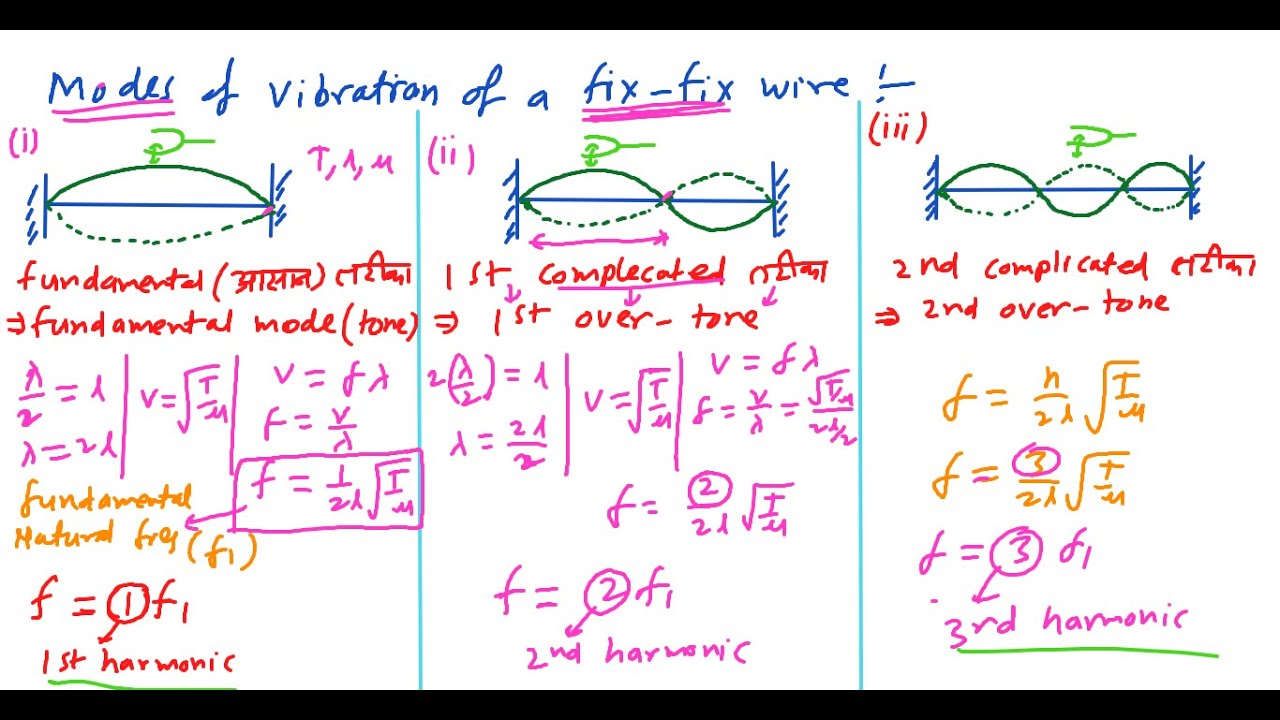 Modes of vibration of a fix-fix wire !-
(i)
T, l, μ
fundamental (आसान) तरीका
⇒ fundamental mode (tone)
λ/2 = l
λ = 2l
v = √(T/μ)
v = fλ
f = v/λ
f = 1/2l √(T/μ)
fundamental
Natural freq (f₁)
f = 1 f₁
1st harmonic
(ii)
1st complecated तरीका
⇒ 1st over-tone
2(λ/2) = l
λ = 2l/2
v = √(T/μ)
v = fλ
f = v/λ = √(T/μ)/(2l/2)
f = 2/2l √(T/μ)
f = 2 f₁
2nd harmonic
(iii)
2nd complicated तरीका
⇒ 2nd over-tone
f = n/2l √(T/μ)
f = 3/2l √(T/μ)
f = 3 f₁
3rd harmonic